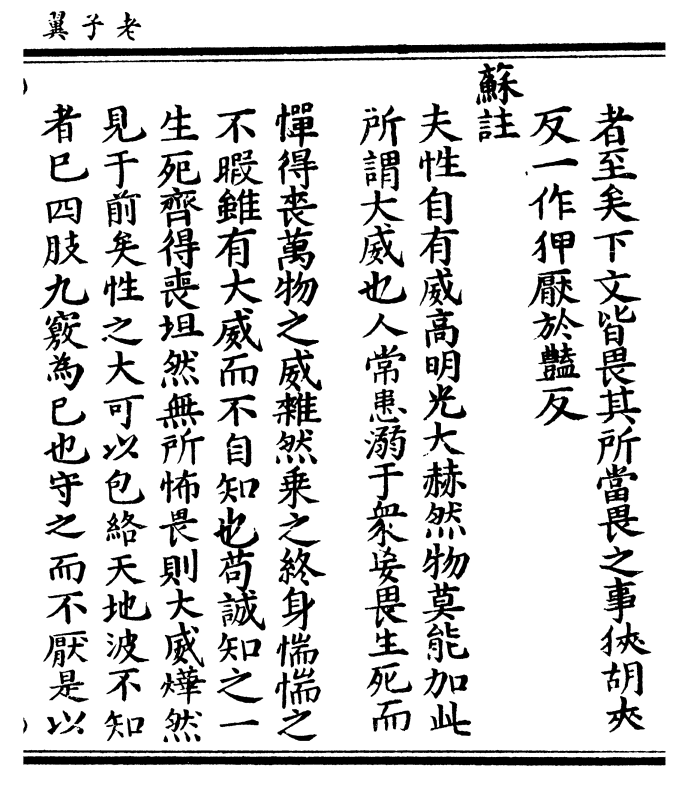 老子翼
者至矣下文皆畏其所當畏之事狹胡夾
反一作狎厭於豔反
蘇註
夫性自有威高明光大赫然物莫能加此
所謂大威也人常患溺于衆妄畏生死而
憚得喪萬物之威雜然乗之終身惴惴之
不暇雖有大威而不自知也苟誠知之一
生死齊得喪坦然無所怖畏則大威燁然
見于前矣性之大可以包絡天地波不知
者巳四肢九竅為巳也守之而不厭是以